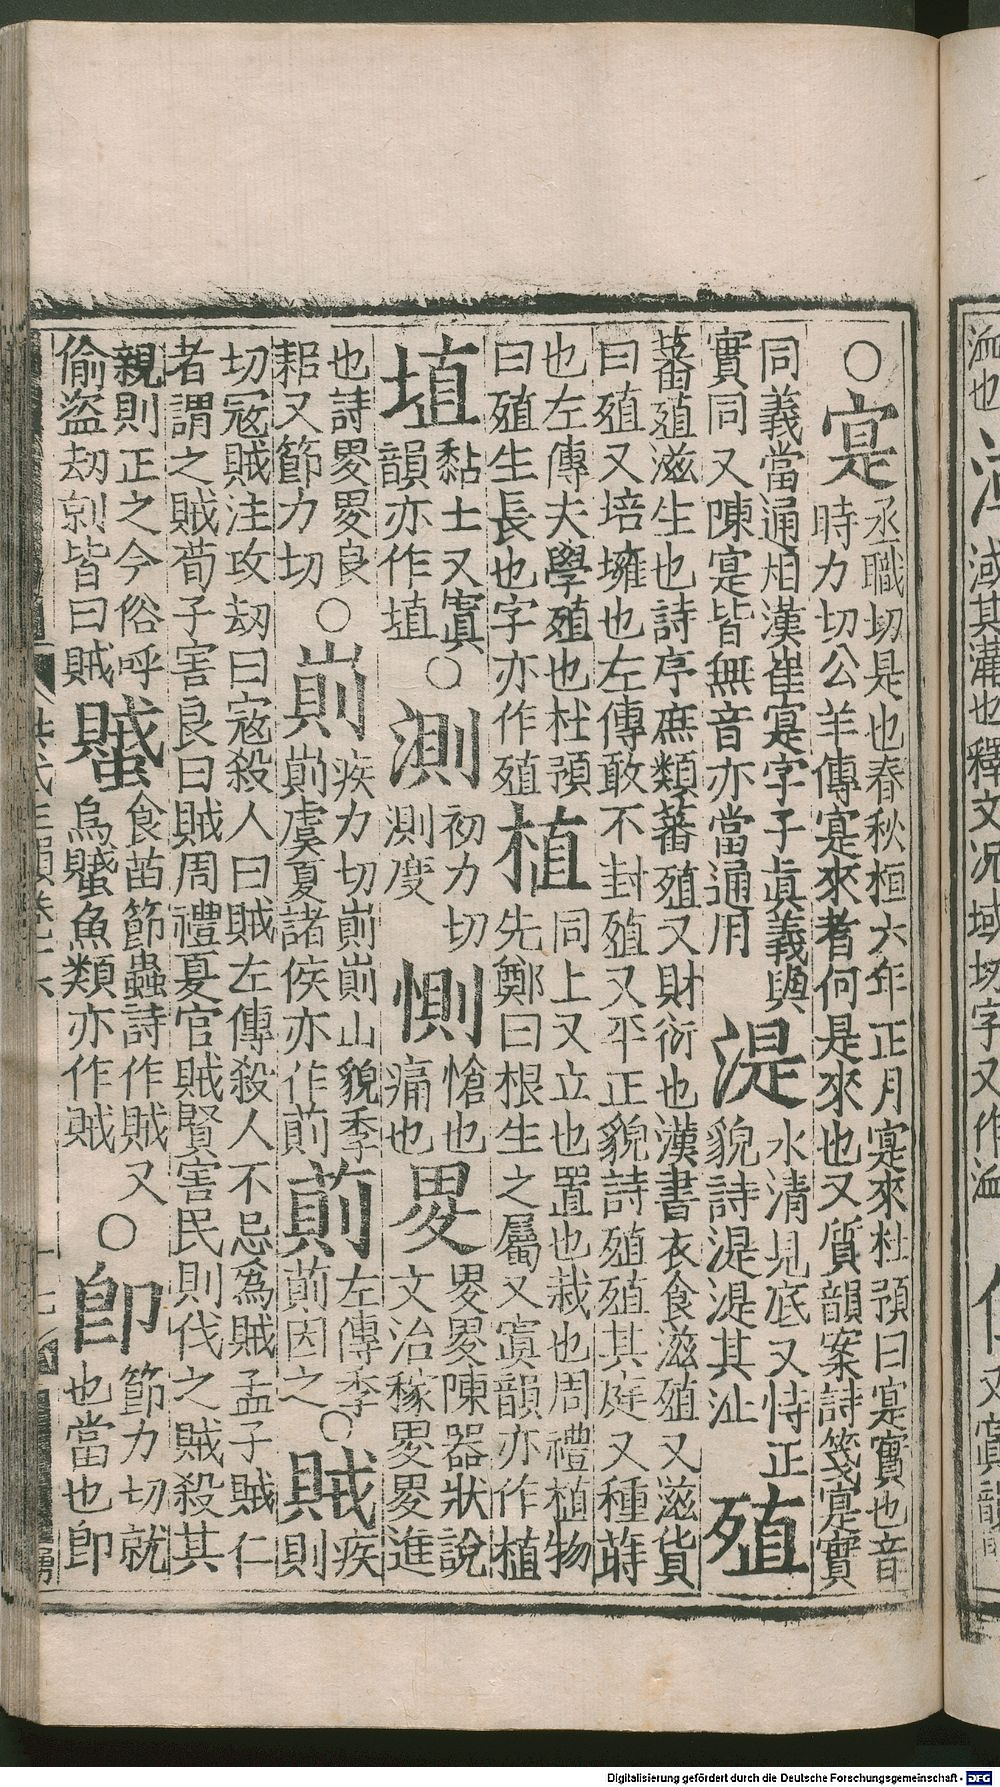 ○寔 丞職切是也春秋桓六年正月寔來杜預曰寔實也音
時力切公羊傳寔來者何是來也又質韻案詩箋寔實
同義當通用漢崔寔字子眞義與
實同又陳寔皆無音亦當通用
湜 水清見底又恃正
貌詩湜湜其沚
殖
蕃殖滋生也詩序庶類蕃殖又財衍也漢書衣食滋殖又滋貨
曰殖又培擁也左傳敢不封殖又平正貌詩殖殖其庭又種蒔
也左傳夫學殖也杜預
曰殖生長也字亦作殖
植 同上又立也置也栽也周禮植物
先鄭曰根生之屬又寘韻亦作植
埴 黏土又寘
韻亦作埴
○測 初力切
測度
惻 愴也
痛也
畟 畟畟陳器狀說
文治稼畟畟進
也詩畟畟良
耜又節力切
○崱 疾力切崱崱山貌季
崱虞夏諸侯亦作萴
萴 左傳季
萴因之
○賊 疾
則
切寇賊注攻刼曰寇殺人曰賊左傳殺人不忌為賊孟子賊仁
者謂之賊荀子害良曰賊周禮夏官賊賢害民則伐之賊殺其
親則正之今俗呼
偷盜劫剠皆曰賊
蠈 食苗節蟲詩作賊又
烏蠈魚類亦作賊
○卽 節力切就
也當也卽
洪武正韻卷十六
十七
Digitalisierung gefördert durch die Deutsche Forschungsgemeinschaft - DFG